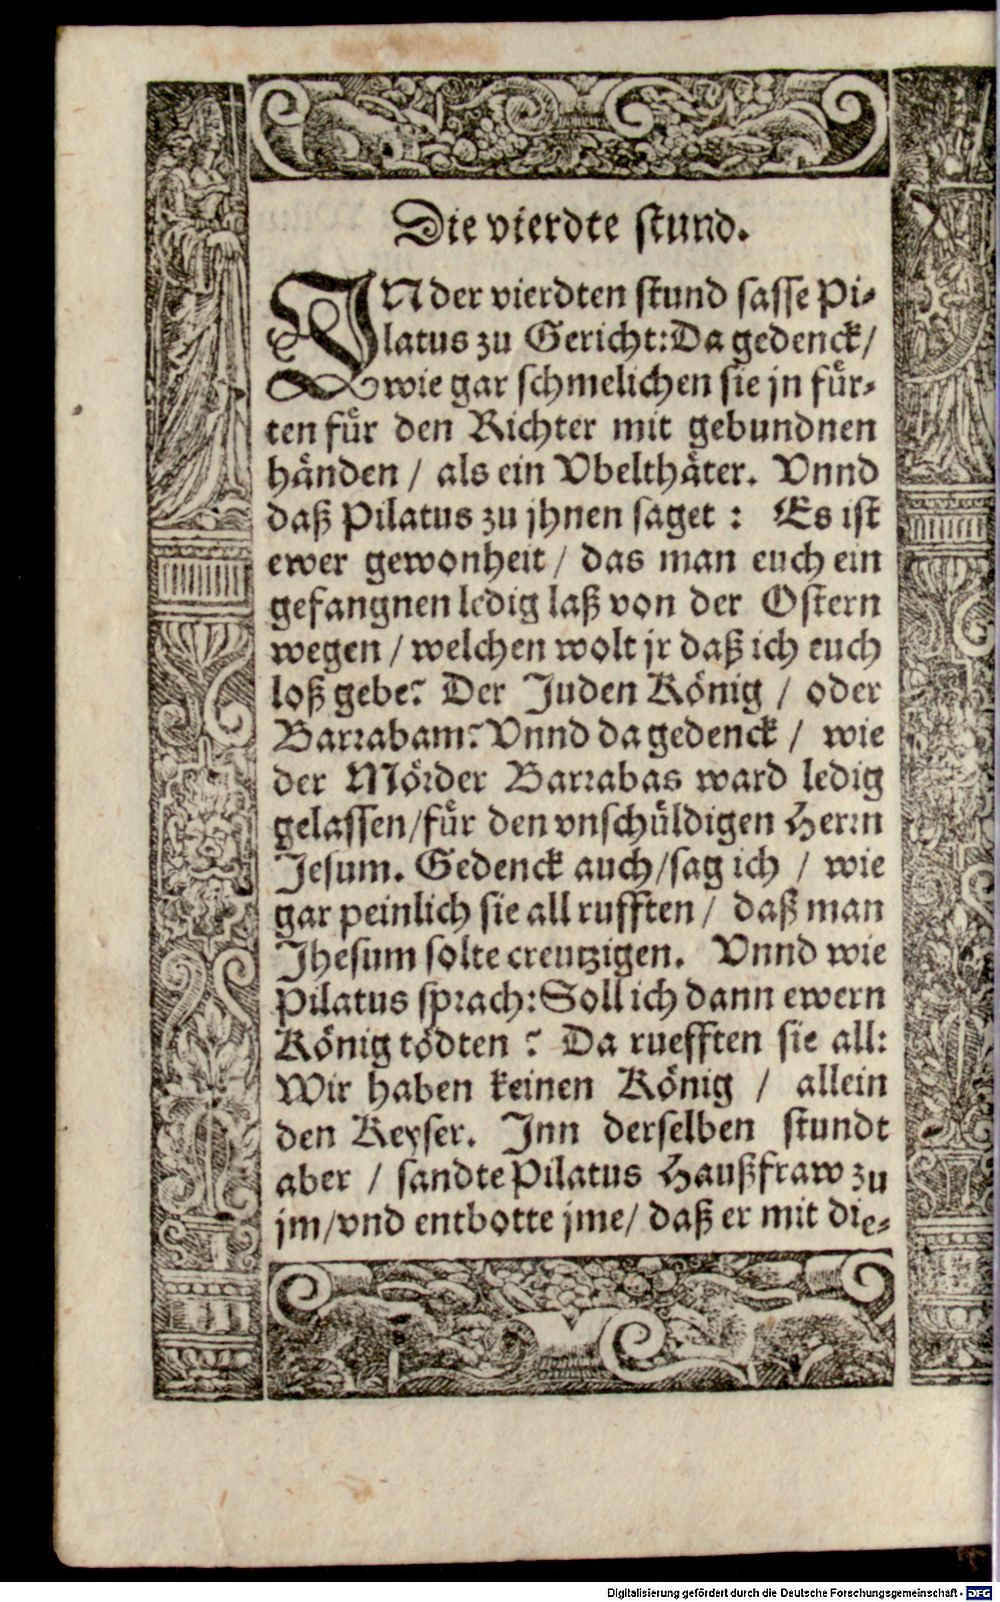 Die vierdte stund.
IN der vierdten stund sasse Pi-
latus zu Gericht: Da gedenck/
wie gar schmelichen sie jn fuͤr-
ten fuͤr den Richter mit gebundnen
haͤnden / als ein Vbelthaͤter. Vnnd
daß Pilatus zu jhnen saget : Es ist
ewer gewonheit / das man euch ein
gefangnen ledig laß von der Ostern
wegen / welchen wolt jr daß ich euch
loß gebe? Der Juden Koͤnig / oder
Barrabam? Vnnd da gedenck / wie
der Moͤrder Barrabas ward ledig
gelassen/fuͤr den vnschuͤldigen Herrn
Jesum. Gedenck auch/sag ich / wie
gar peinlich sie all rufften / daß man
Jhesum solte creutzigen. Vnnd wie
Pilatus sprach: Soll ich dann ewern
Koͤnig toͤdten ? Da ruefften sie all:
Wir haben keinen Koͤnig / allein
den Keyser. Jnn derselben stundt
aber / sandte Pilatus Haußfraw zu
jm/vnd entbotte jme/ daß er mit die-
Digitalisierung gefördert durch die Deutsche Forschungsgemeinschaft - DFG